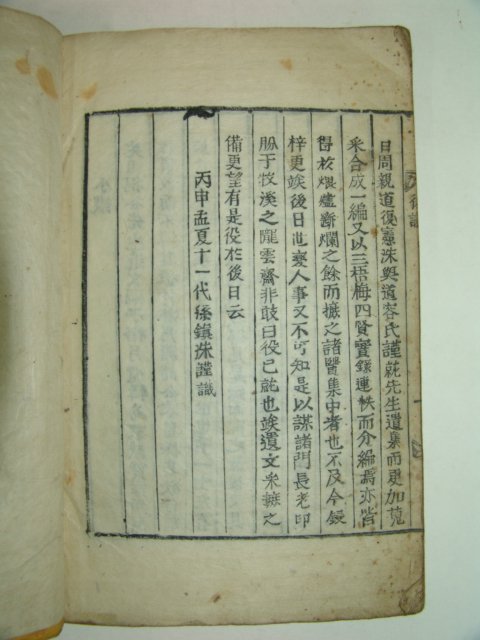 日周親道復憲洙與道容氏謹就先生遺集而更加蒐
釆合成一編又以三梧梅四賢實錄連帙而分編焉亦皆
得於煨爐斷爛之餘而摭之諸賢集中者也不及今鋟
梓更竢後日世變人事又不可知是以謀諸門長老印
胁于牧溪之隴雲齋非敢曰役已就也竢遺文釆摭之
備更望有是役於後日云
丙申孟夏十一代孫鎭洙謹識